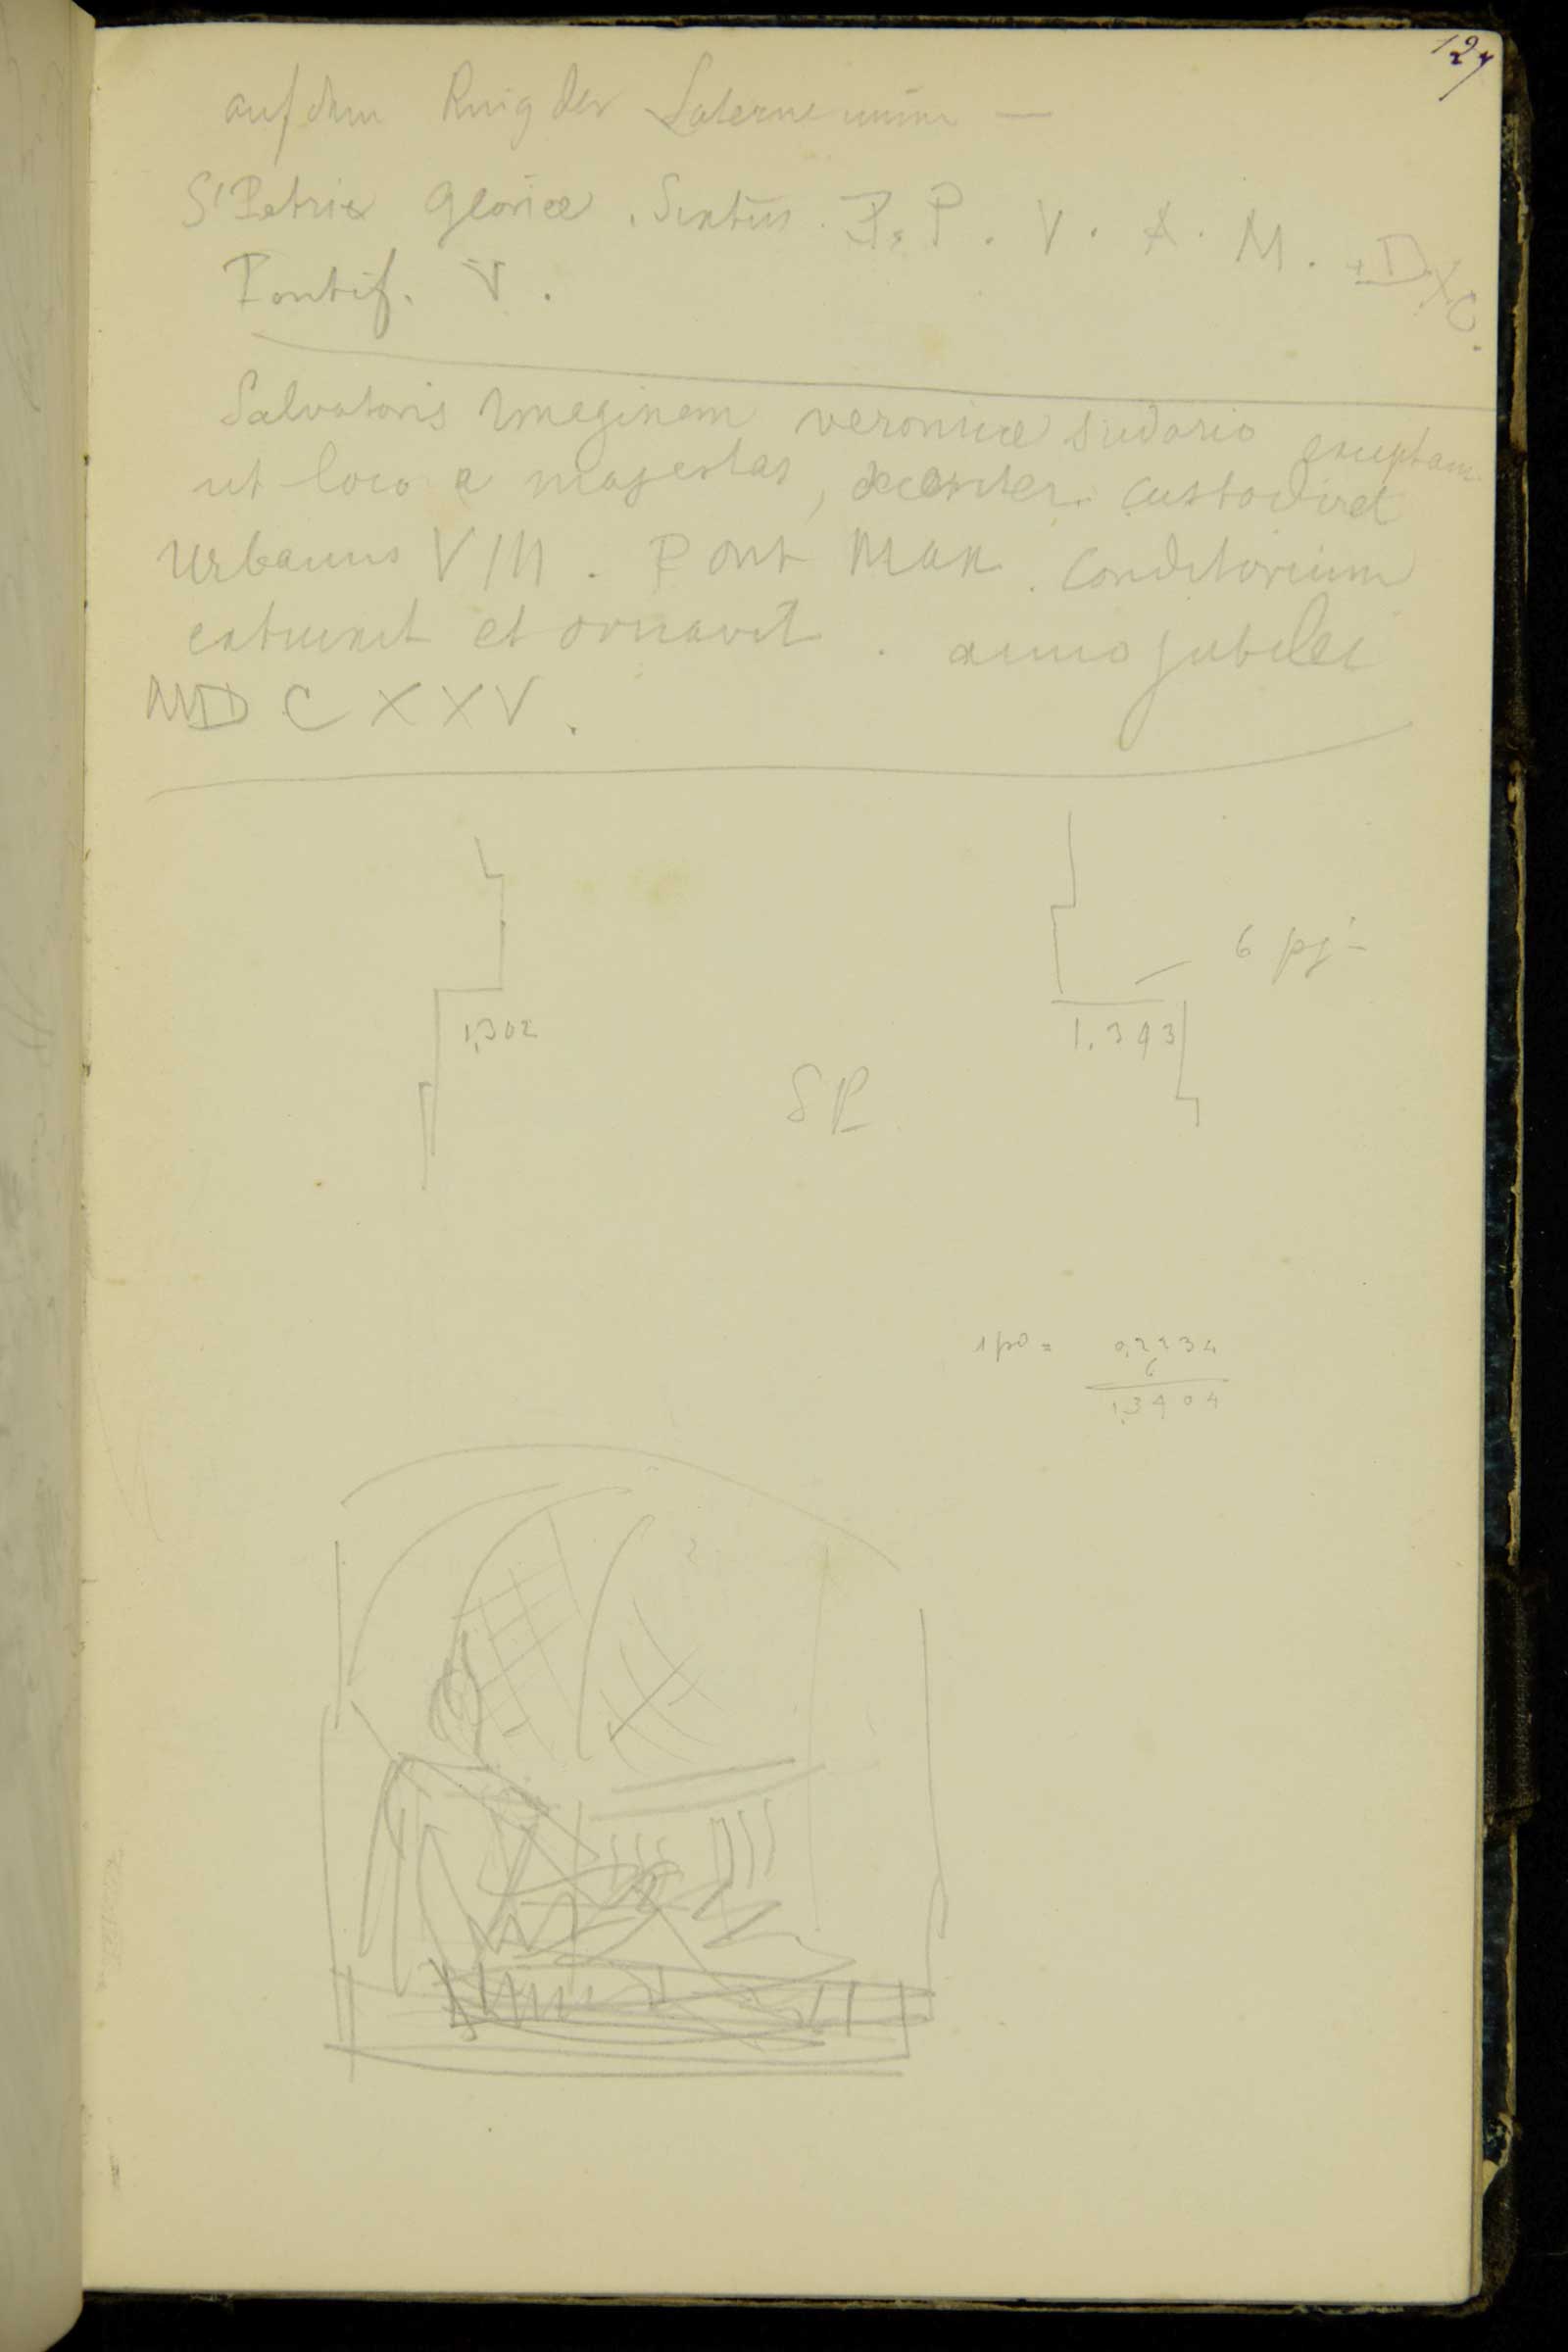 127
auf dem Ring der Laterne innen —
St Petri Gloriæ . Sixtus . P. P . V . A . M . D X C .
Pontif. V .
Salvatoris imaginem veronicæ sudario exceptam
ut loco a majestas , decenter custodiret
Urbanus VIII . Pont Max . Conditorium
extruxit et ornavit . anno jubilei
MD C X X V .
1,302
1.343
SP
1 po = 0,2234
6
1,3404